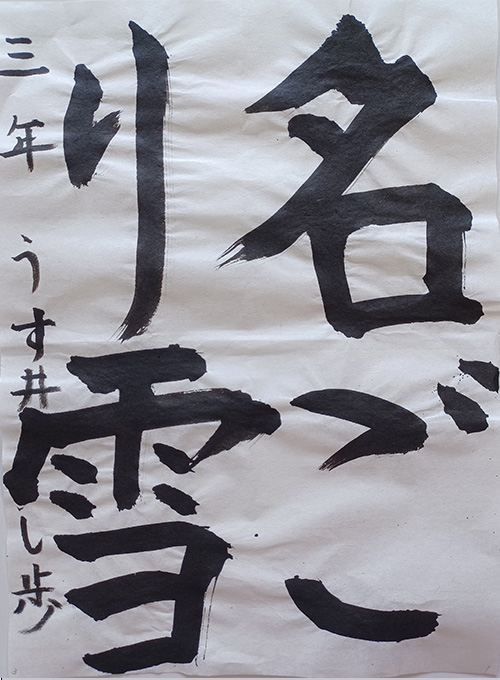 名ご
り雪
三年 うす井 し歩